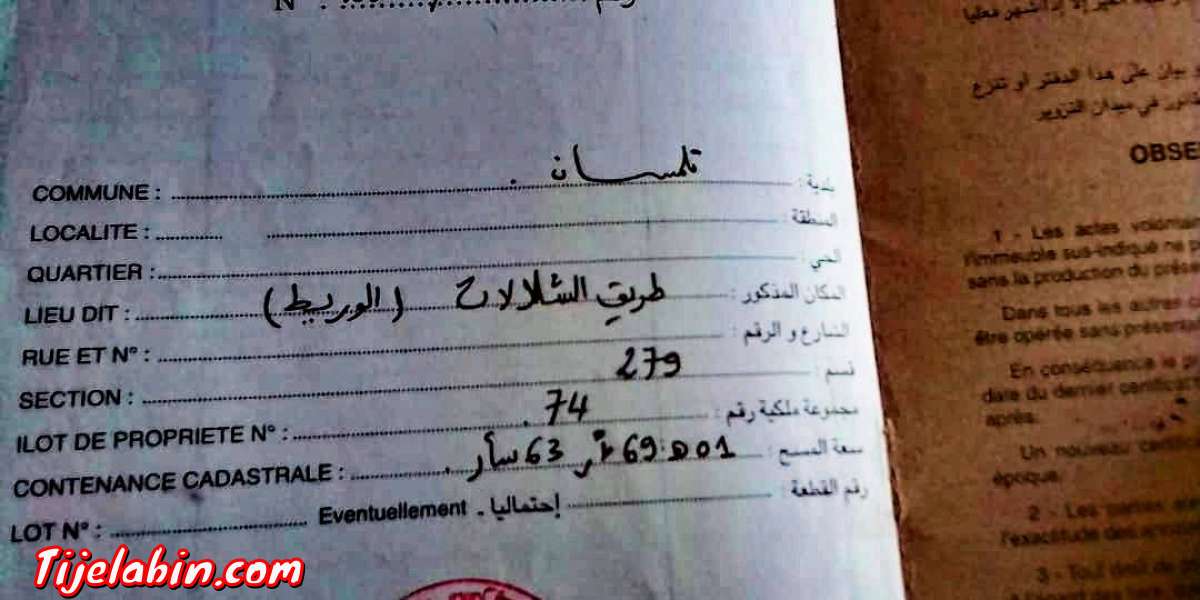 N° : ................ رقم
COMMUNE : تلمسان . بلدية :
LOCALITE : المنطقة :
QUARTIER : الحي :
LIEU DIT : طريق الشلالات (الوريط) المكان المذكور :
RUE ET N° : الشارع و الرقم :
SECTION : 279 قسم :
ILOT DE PROPRIETE N° : 74 . مجموعة ملكية رقم :
CONTENANCE CADASTRALE : 01ه 69آر 63سآر . سعة المسح :
LOT N° : Eventuellement - إحتماليا رقم القطعة :
بيان على هذا الدفتر او تنزع
في ميدان التزوير
OBSE
1 - Les actes volonta
l'immeuble sus-indiqué ne p
sans la production du prése
Dans tous les autres
être opérée sans présenta
En conséquence le p
date du dernier certificat
après.
Un nouveau certif
époque.
2 - Les parties
l'exactitude des
3 - Tout droit de
Tijelabin.com